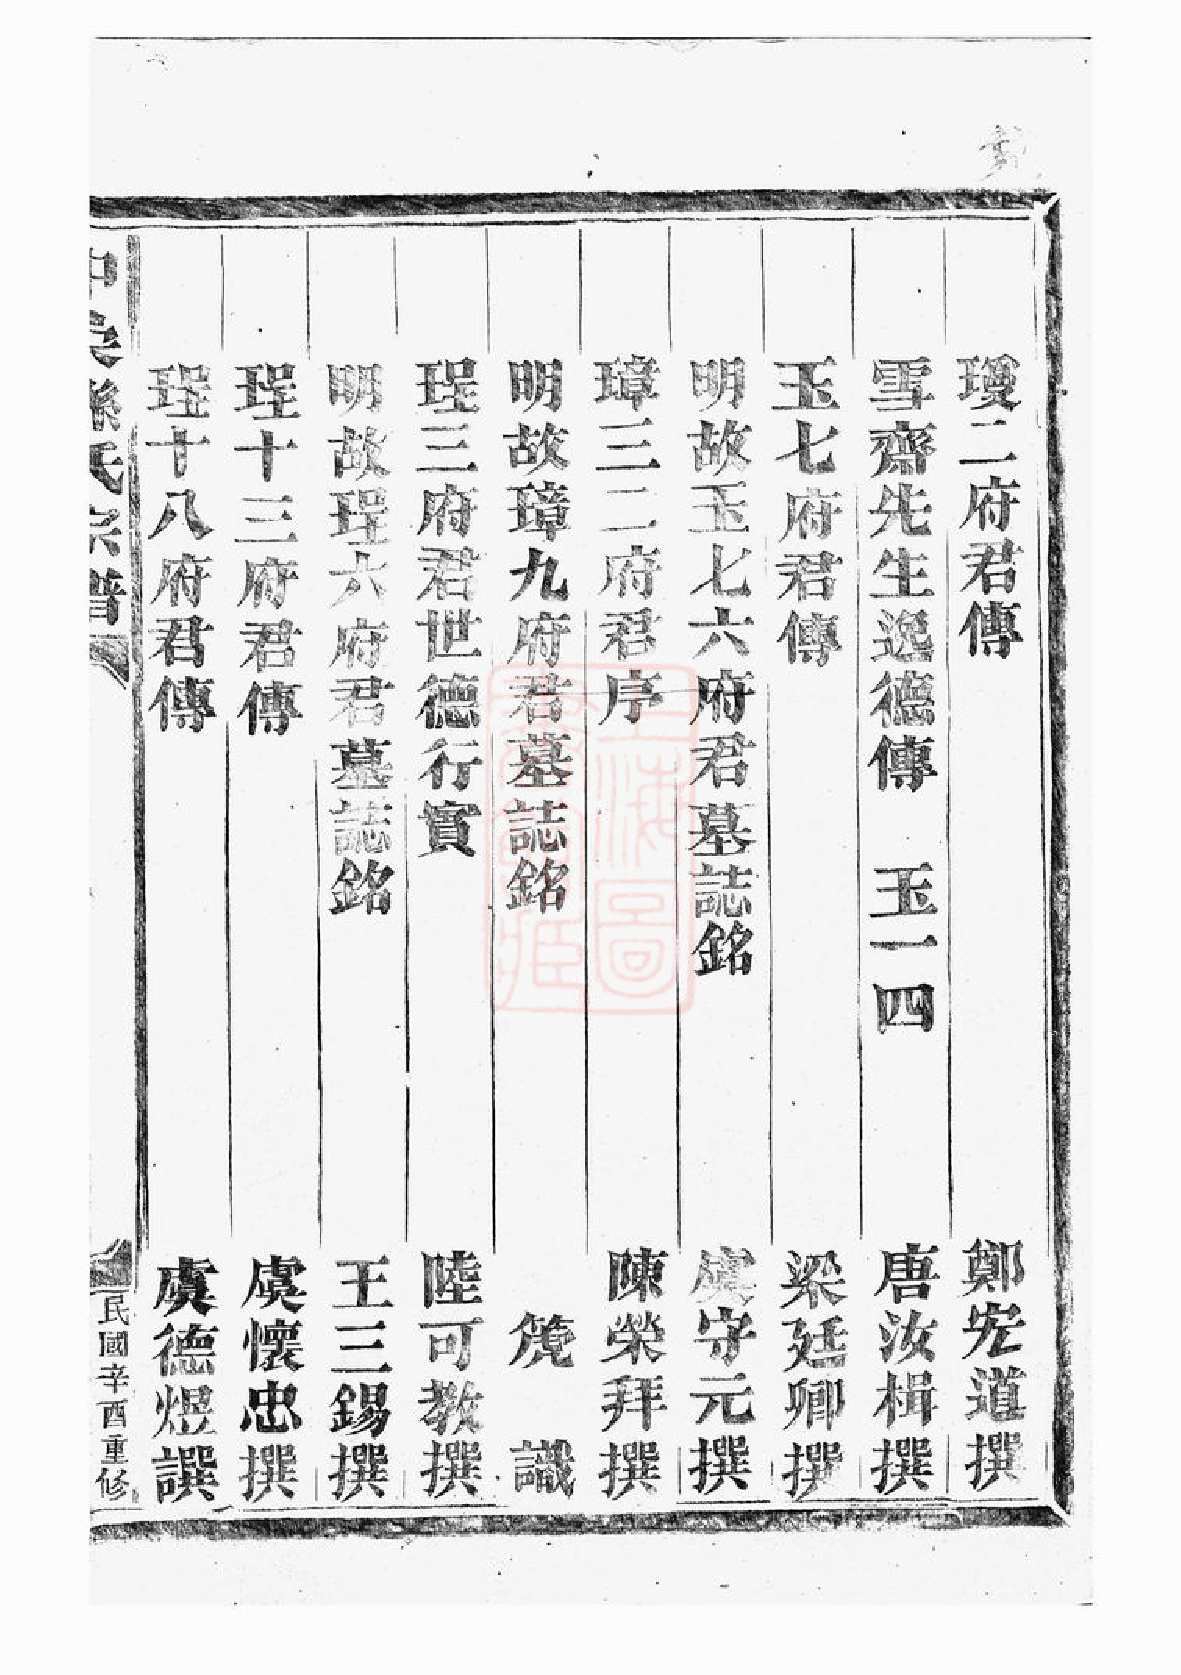 瓊二府君傳 鄭宏道撰
雪齋先生逸德傳 玉一四 唐汝楫撰
玉七府君傳 梁廷卿撰
明故玉七六府君墓誌銘 虞守元撰
璋三二府君序 陳榮拜撰
明故璋九府君墓誌銘 箎識
珵三府君世德行實 陸可教撰
明故珵六府君墓誌銘 王三錫撰
珵十三府君傳 虞懷忠撰
珵十八府君傳 虞德煜譔
氏宗譜
民國辛酉重修
上海圖書館藏